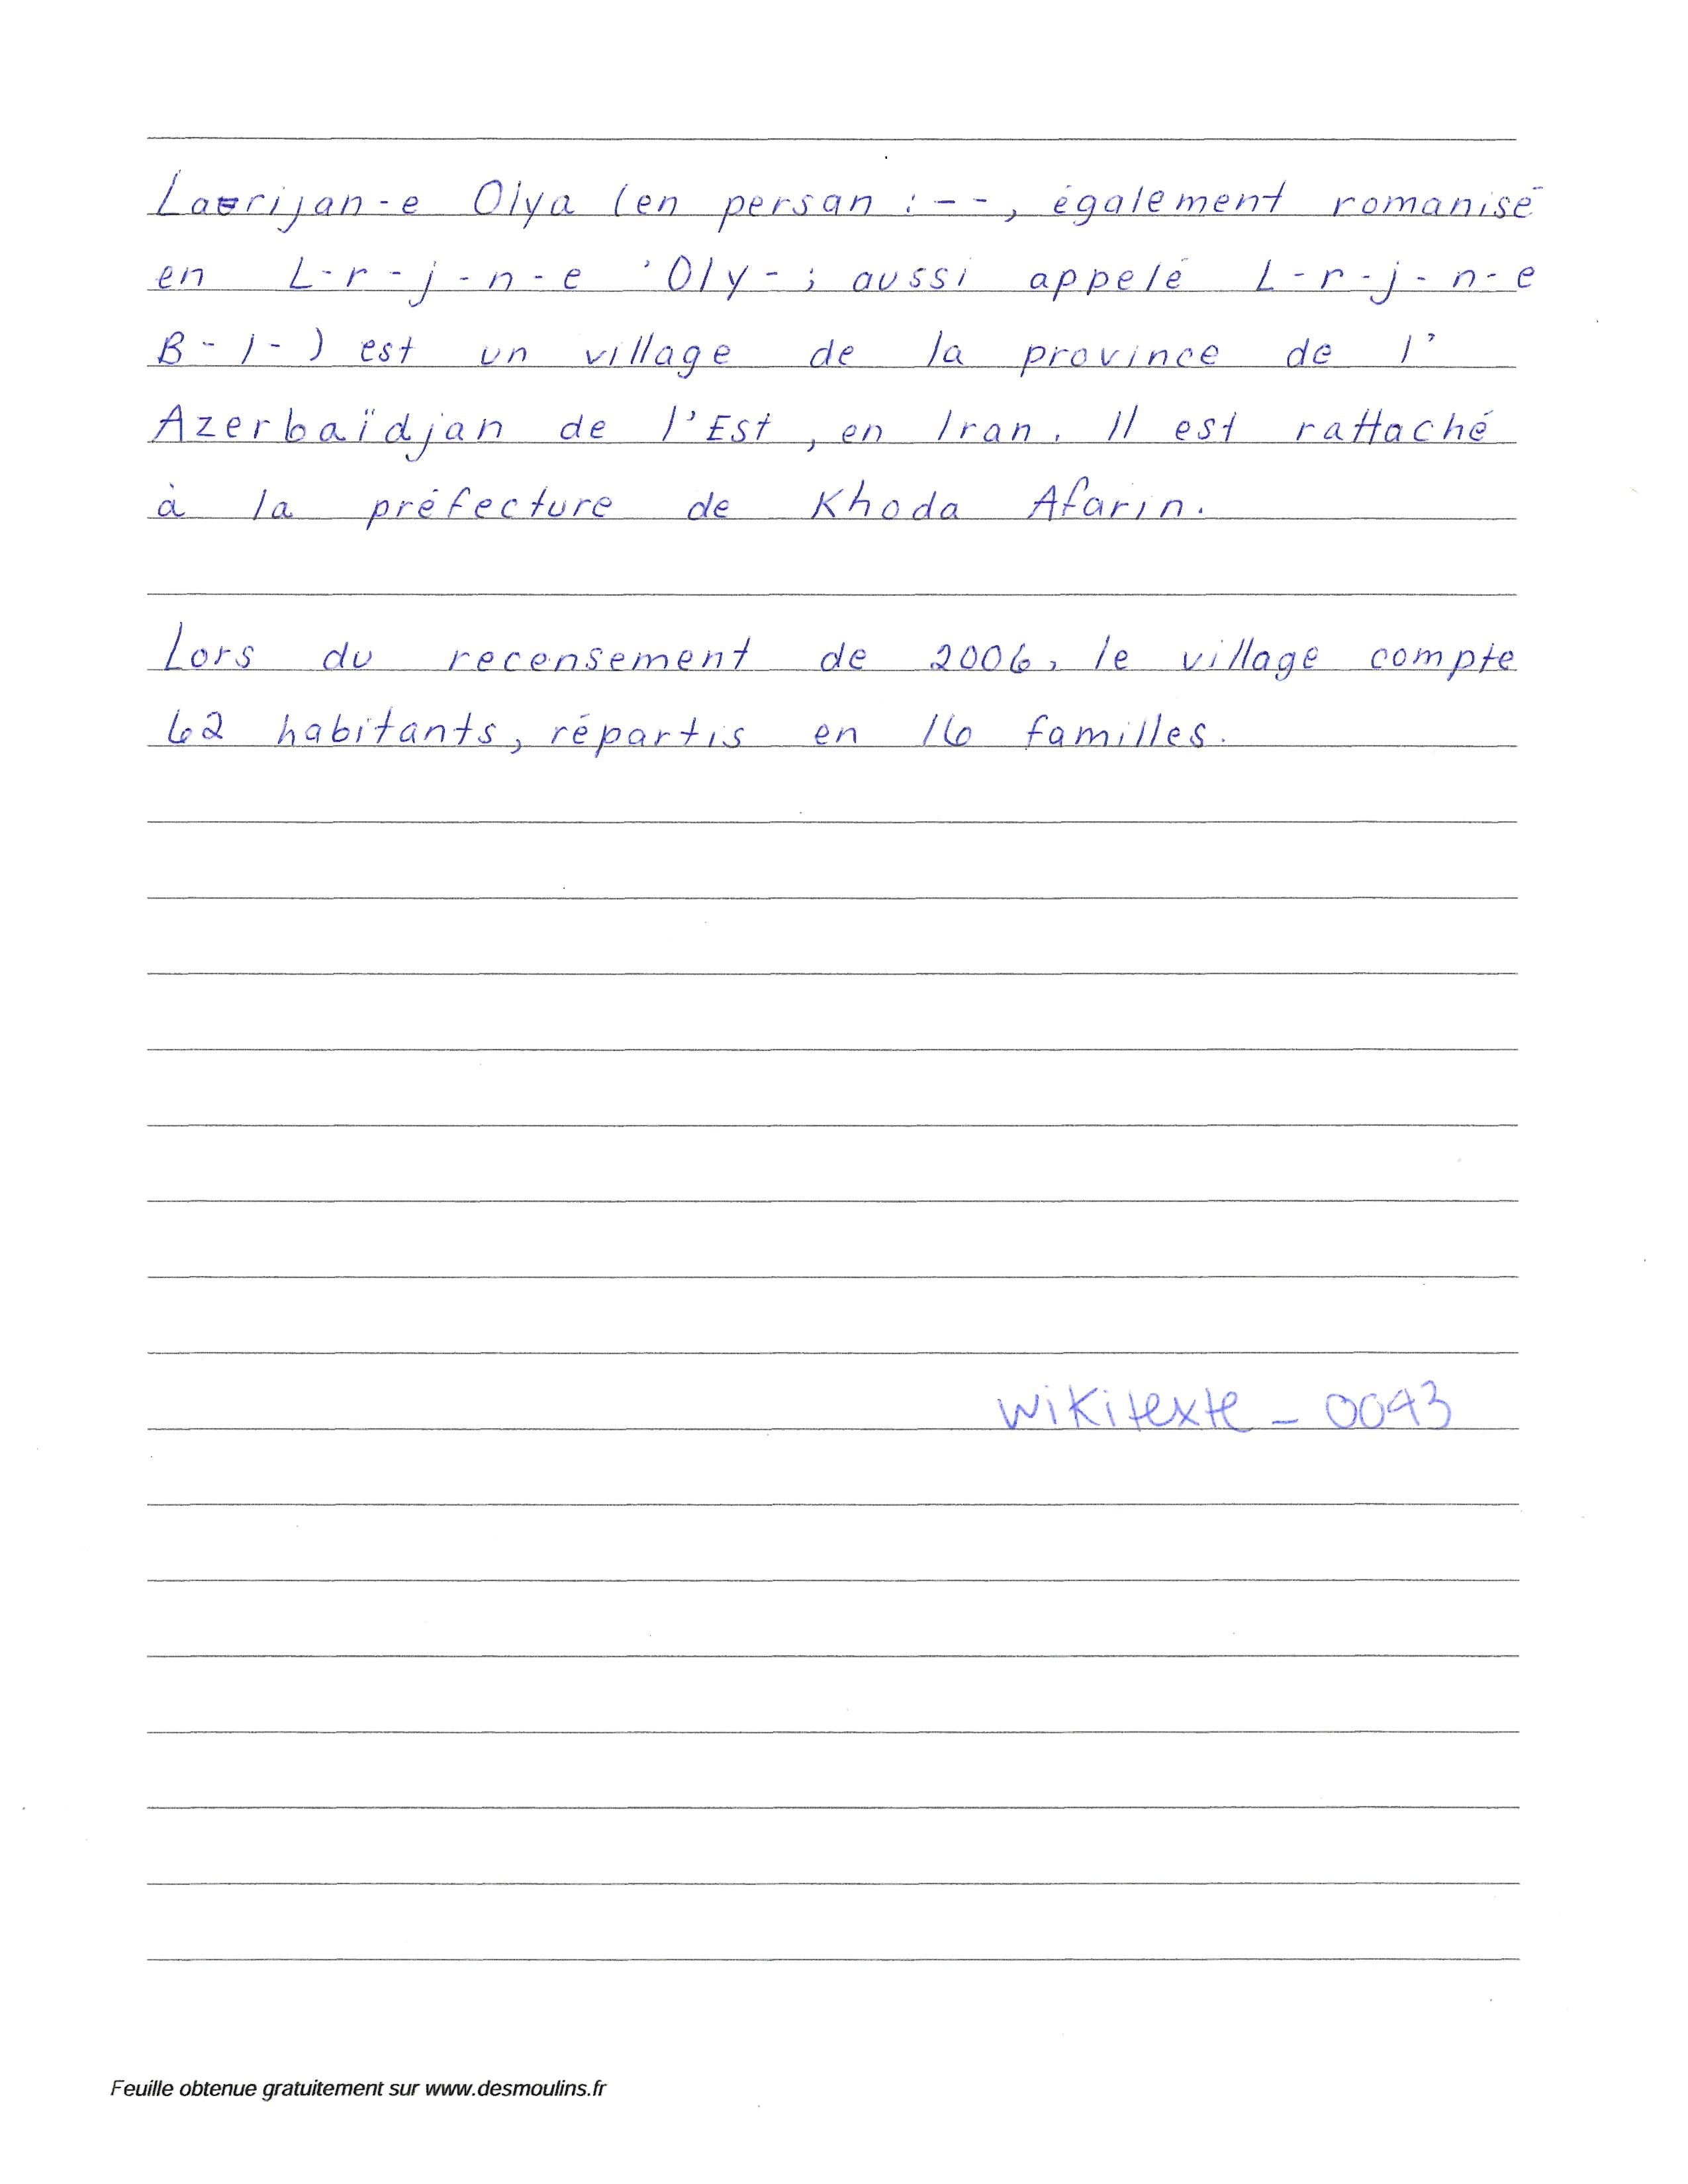 Larijan-e Olya (en persan : - -, également romanisé
en L-r-j-n-e 'Oly-; aussi appelé L-r-j-n-e
B-l-) est un village de la province de l'
Azerbaïdjan de l'Est, en Iran. Il est rattaché
à la préfecture de Khoda Afarin.
Lors du recensement de 2006, le village compte
62 habitants, répartis en 16 familles.
wikitexte_0093
Feuille obtenue gratuitement sur www.desmoulins.fr